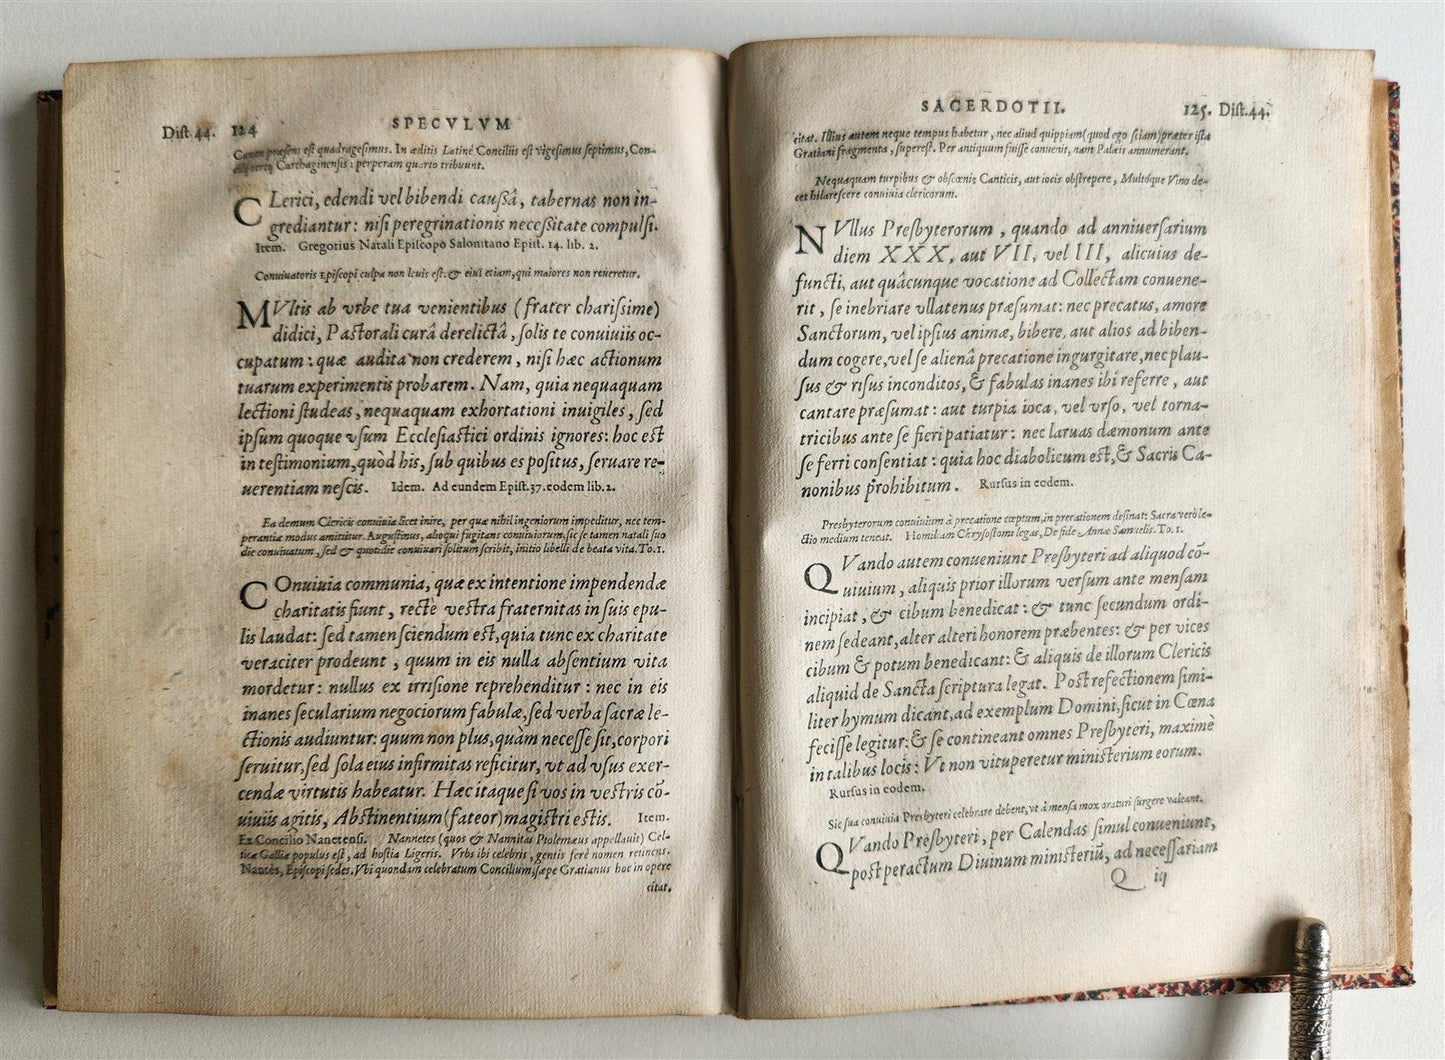 Dist. 44. 124 SPECVLVM
Canon præsens est quadragesimus. In æditis Latinè Concilijs est vigesimus septimus, Con-
Carthaginensis: perperam quarto tribuunt.
CLerici, edendi vel bibendi caussâ, tabernas non in-
grediantur: nisi peregrinationis necessitate compulsi.
Item. Gregorius Natali Episcopo Salonitano Epist. 14. lib. 2.
Conuiuatoris Episcopi culpa non leuis est: & eius etiam, qui maiores non reueretur.
MVltis ab vrbe tua venientibus (frater charissime)
didici, Pastorali curâ derelictâ, solis te conuiuiis oc-
cupatum: quæ audita non crederem, nisi hæc actionum
tuarum experimentis probarem. Nam, quia nequaquam
lectioni studeas, nequaquam exhortationi inuigiles, sed
ipsum quoque vsum Ecclesiastici ordinis ignores: hoc est
in testimonium, quòd his, sub quibus es positus, seruare re-
uerentiam nescis. Idem. Ad eundem Epist. 37. eodem lib. 2.
Ea demum Clericis conuiuia licet inire, per quæ nihil ingeniorum impeditur, nec tem-
perantiæ modus amittitur. Augustinus, alioqui fugitans conuiuiorum, sic se tamen natali suo
die conuiuatum, sed & quotidie conuiuari solitum scribit, initio libelli de beata vita. To. 1.
COnuiuia communia, quæ ex intentione impendendæ
charitatis fiunt, rectè vestra fraternitas in suis epu-
lis laudat: sed tamen sciendum est, quia tunc ex charitate
veraciter prodeunt, quum in eis nulla absentium vita
mordetur: nullus ex irrisione reprehenditur: nec in eis
inanes secularium negociorum fabulæ, sed verba sacræ le-
ctionis audiuntur: quum non plus, quàm necesse sit, corpori
seruitur, sed sola eius infirmitas reficitur, vt ad vsus exer-
cendæ virtutis habeatur. Hæc itaque si vos in vestris cō-
uiuiis agitis, Abstinentium (fateor) magistri estis. Item.
Ex Concilio Nanetensi. Nannetes (quos & Nannitas Ptolemæus appellauit) Cel-
ticæ Galliæ populus est, ad hostia Ligeris. Vrbs ibi celebris, gentis ferè nomen retinens.
Nantes, Episcopi sedes. Vbi quondam celebratum Concilium, sæpe Gratianus hoc in opere
citat.
SACERDOTII. 125. Dist. 44.
citat. Illius autem neque tempus habetur, nec aliud quippiam (quod ego sciam) præter ista
Gratiani fragmenta, superest. Per antiquum fuisse conuenit, nam Palæis annumerant.
Nequaquam turpibus & obscœnis Canticis, aut iocis obstrepere, Multóque Vino de-
cet hilarescere conuiuia clericorum.
NVllus Presbyterorum, quando ad anniuersarium
diem XXX, aut VII, vel III, alicuius de-
functi, aut quâcunque vocatione ad Collectam conuene-
rit, se inebriare vllatenus præsumat: nec precatus, amore
Sanctorum, vel ipsius animæ, bibere, aut alios ad biben-
dum cogere, vel se alienâ precatione ingurgitare, nec plau-
sus & risus inconditos, & fabulas inanes ibi referre, aut
cantare præsumat: aut turpia ioca, vel vrso, vel torna-
tricibus ante se fieri patiatur: nec laruas dæmonum ante
se ferri consentiat: quia hoc diabolicum est, & Sacris Ca-
nonibus prohibitum. Rursus in eodem.
Presbyterorum conuiuium à precatione cœptum, in precationem desinat: Sacra verò le-
ctio medium teneat. Homiliam Chrysostomi legas, De fide Annæ Samuelis. To. 1.
QVando autem conueniunt Presbyteri ad aliquod cō-
uiuium, aliquis prior illorum versum ante mensam
incipiat, & cibum benedicat: & tunc secundum ordi-
nem sedeant, alter alteri honorem præbentes: & per vices
cibum & potum benedicant: & aliquis de illorum Clericis
aliquid de Sancta scriptura legat. Post refectionem simi-
liter hymum dicant, ad exemplum Domini, sicut in Cœna
fecisse legitur: & se contineant omnes Presbyteri, maximè
in talibus locis: Vt non vituperetur ministerium eorum.
Rursus in eodem.
Sic sua conuiuia Presbyteri celebrare debent, vt à mensa mox oraturi surgere valeant.
QVando Presbyteri, per Calendas simul conueniunt,
post peractum Diuinum ministeriũ, ad necessariam
Q iij